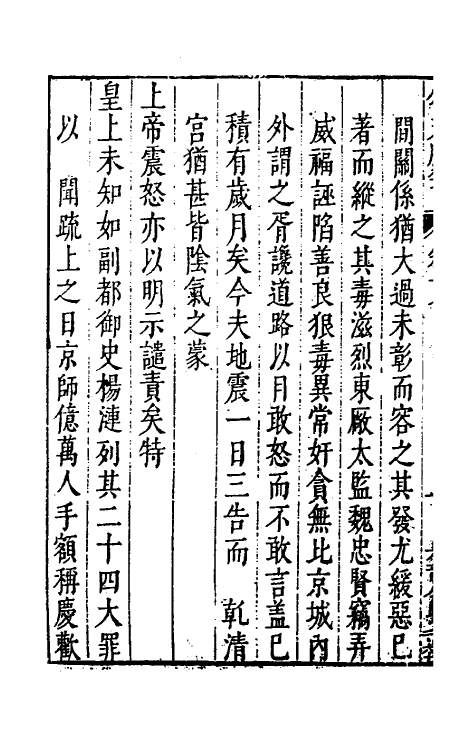 間關係猶大過未彰而容之其發尤緩惡已
著而縱之其毒滋烈東厰太監魏忠賢竊弄
威福誣陷善良狠毒異常奸貪無比京城內
外謂之胥讒道路以目敢怒而不敢言盖已
積有歲月矣今夫地震一日三告而　乹清
宫猶甚皆陰氣之蒙
上帝震怒亦以明示譴責矣特
皇上未知如副都御史楊漣列其二十四大罪
以　聞疏上之日京師億萬人手額稱慶歡